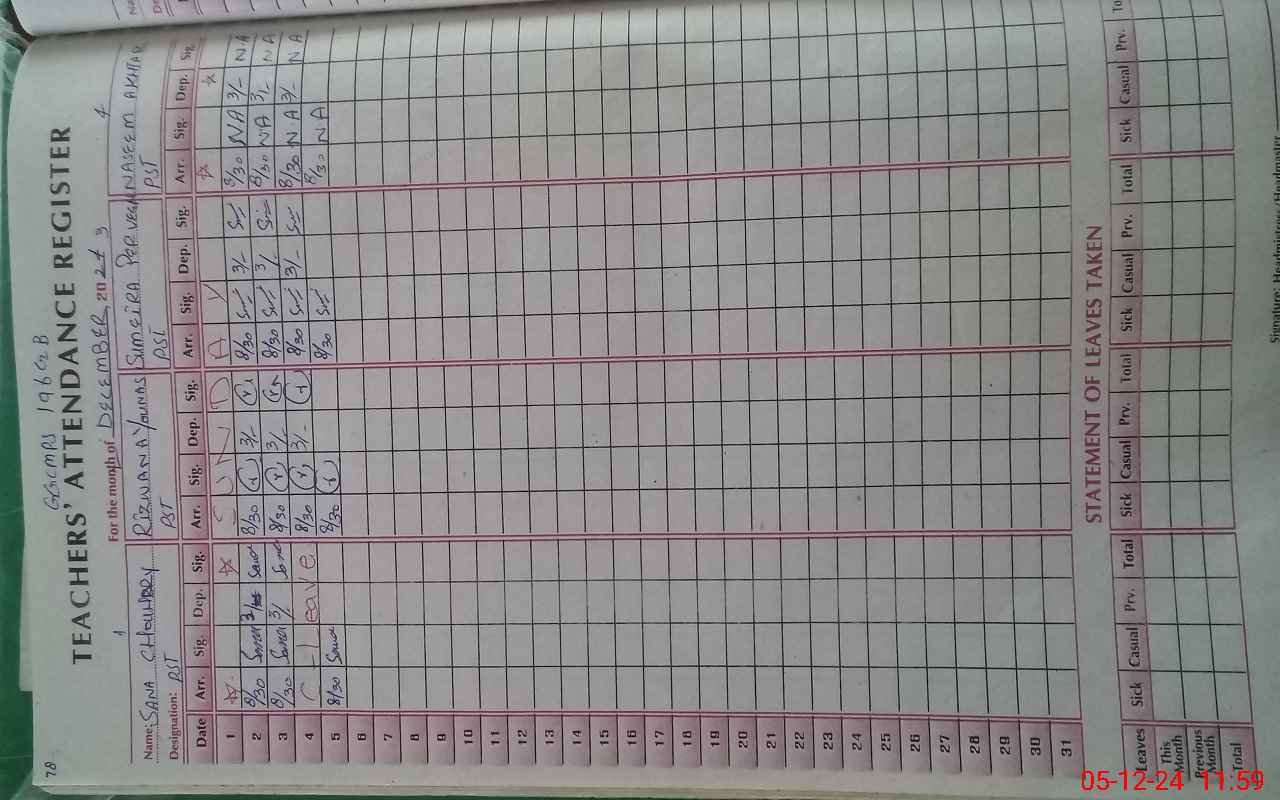 78
GGCMPS 196 GB
TEACHERS' ATTENDANCE REGISTER
For the month of DECEMBER, 2024
1 3 4
Name: SANA CHOUHDRY RIZWANA YOUNAS SUMEIRA PERVEEN NASEEM AKHTAR
Designation: PST PST PST PST
Date Arr. Sig. Dep. Sig. Arr. Sig. Dep. Sig. Arr. Sig. Dep. Sig. Arr. Sig. Dep. Sig.
1 S U N D A Y
2 8/30 Sana 3/- Sana 8/30 3/- 8/30 3/- 8/30 NA 3/- NA
3 8/30 Sana 3/- Sana 8/30 3/- 8/30 3/- 8/30 NA 3/- NA
4 C-Leave 8/30 3/- 8/30 3/- 8/30 NA 3/- NA
5 8/30 Sana 8/30 8/30 8/30 NA
6
7
8
9
10
11
12
13
14
15
16
17
18
19
20
21
22
23
24
25
26
27
28
29
30
31
STATEMENT OF LEAVES TAKEN
Leaves Sick Casual Prv. Total Sick Casual Prv. Total Sick Casual Prv. Total Sick Casual Prv. To
This Month
Previous Month
Total
Signature: Headmistress/Headmaster
05-12-24 11:59